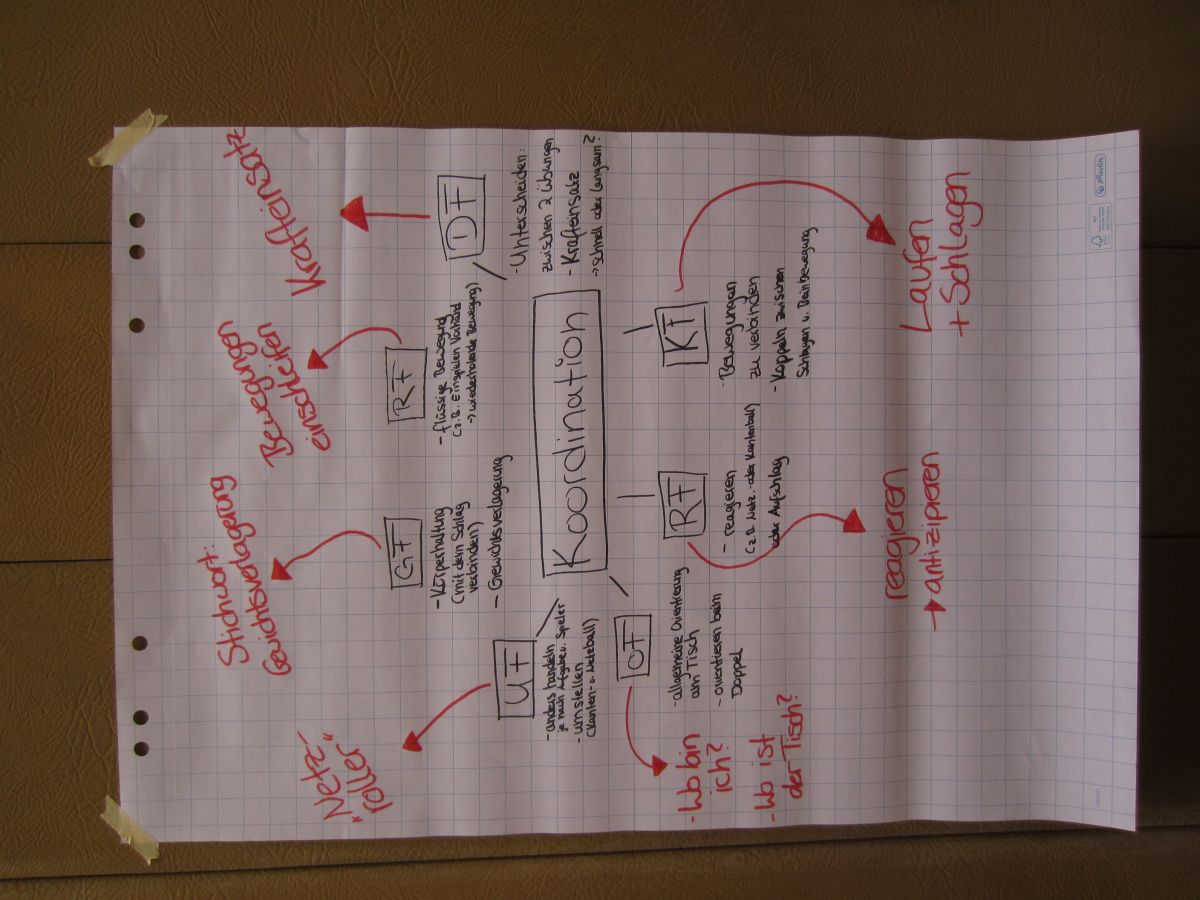 Koordination
UF
- anders handeln
je nach Aufgabe u. Spieler
- umstellen
(Kanten- o. Netzball)
"Netz-
roller"
GF
- Körperhaltung
(mit dem Schlag
verbinden)
- Gewichtsverlagerung
Stichwort:
Gewichtsverlagerung
RF
- flüssige Bewegung
(z.B. Einspielen Vorhand
→ wiederholende Bewegung)
Bewegungen
einschleifen
DF
- Unterscheiden:
zwischen 2 Übungen
- Krafteinsatz
→ schnell oder langsam?
Krafteinsatz
OF
- allgemeine Orientierung
am Tisch
- orientieren beim
Doppel
- Wo bin
ich?
- Wo ist
der Tisch?
RF
- reagieren
(z.B. Netz- oder Kantenball)
oder Aufschlag
reagieren
→ antizipieren
KF
- Bewegungen
zu verbinden
- Koppeln zwischen
Schlagen u. Beinbewegung
Laufen
+ Schlagen